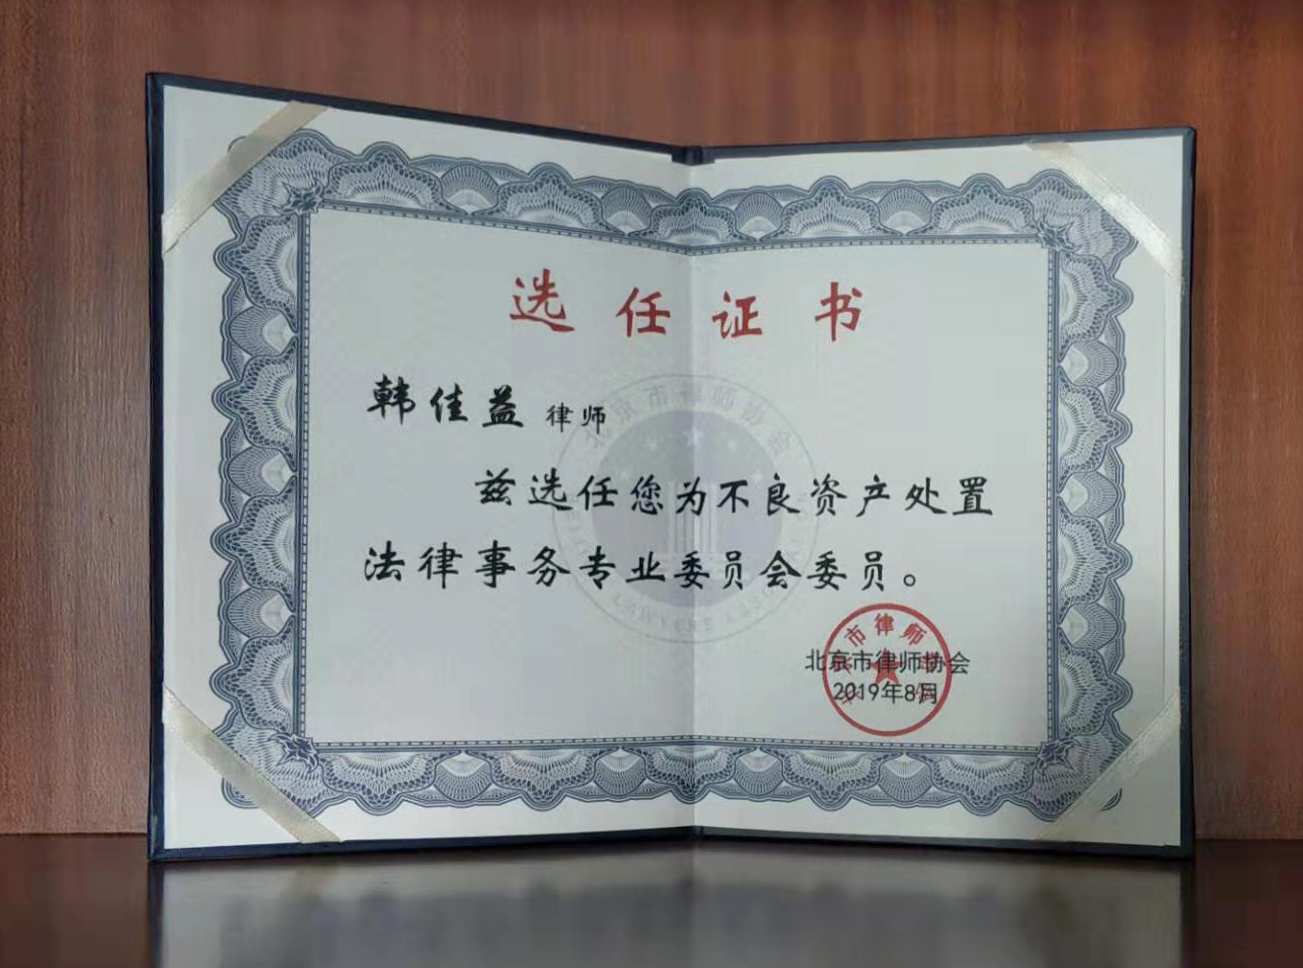 选任证书
韩佳益 律师
兹选任您为不良资产处置
法律事务专业委员会委员。
北京市律师协会
2019年8月
北京市律师协会
市律师